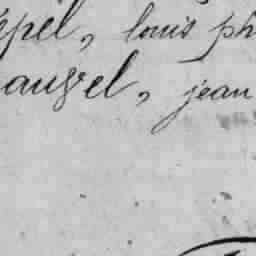 épel, louis ph
auzel, jean